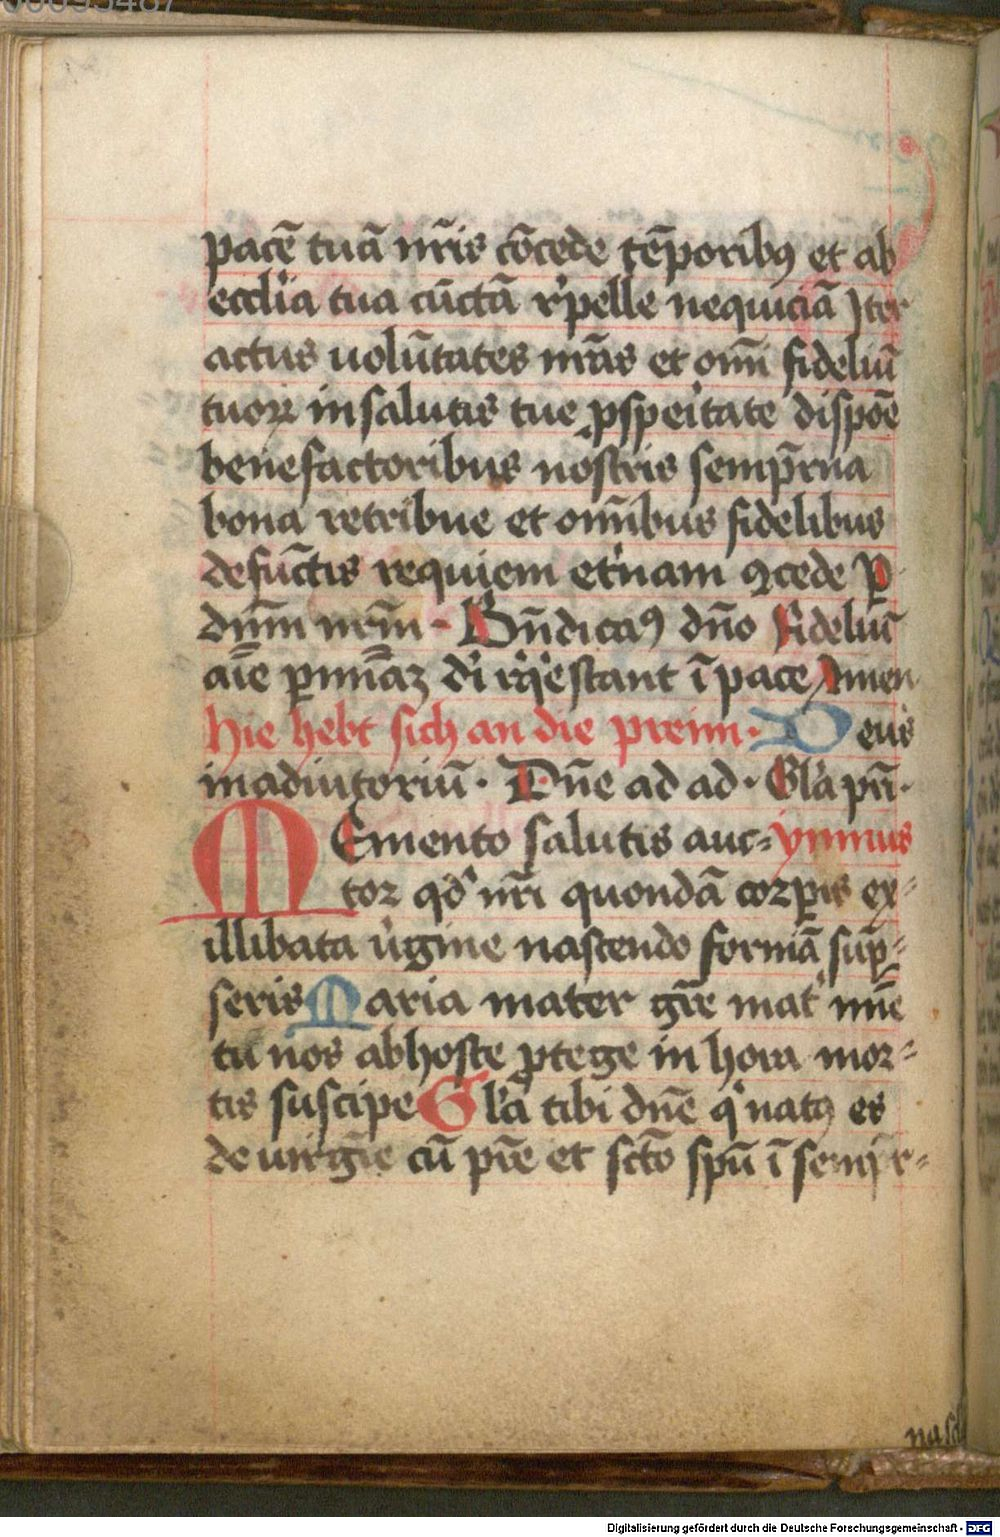 pacē tuā nr̄is cōcede tēporibꝯ et ab
eccl'ia tua cūctā r'pelle nequiciā Iter
actus uolūtates nr̄as et om̄i fideliū
tuoꝝ in salutis tue ꝓspeītate dispoē
benefactoribus nostris semp̄rna
bona retribue et om̄ibus fidelibus
defūctis requiem et'nam ꝯcede ꝑ
dn̄m nr̄m Bn̄dicaꝯ dn̄o Fideliū
aīe pmīaꝫ dī īpace Amen
hie hebt sich an die preim. Deus
in adiutoriū. Dn̄e ad ad. Gl'a pr̄i.
Memento salutis auc= ymnus
tor qd' nr̄i quondā corꝑis ex=
illibata u'gine nascendo formā sūp=
seris Maria mater gr̄e mat' mīe
tu nos ab hoste ꝓtege in hora mor=
tis suscipe Gl'a tibi dn̄e q' natꝯ es
de uirgīe cū pr̄e et sc̄to spū ī semp r=
Digitalisierung gefördert durch die Deutsche Forschungsgemeinschaft - DFG